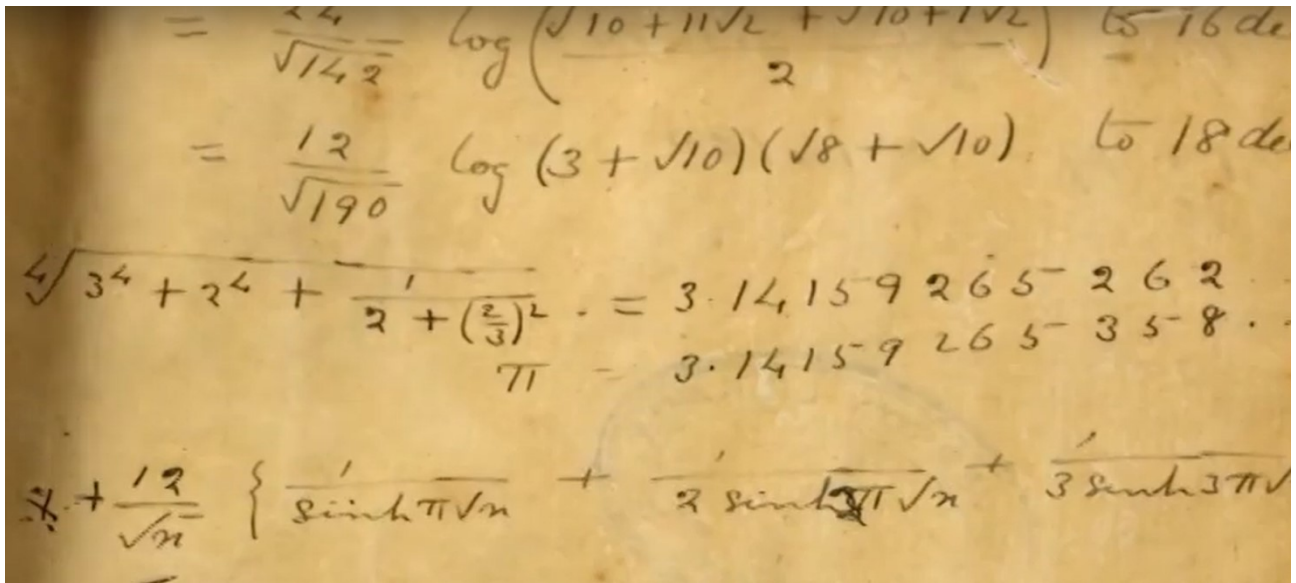 = 24/√142 log((√10 + 11√2 + √10 + 7√2)/2) to 16 de
= 12/√190 log (3 + √10)(√8 + √10) to 18 de
∜(3⁴ + 2⁴ + 1/(2 + (2/3)²)) · = 3.14159265262 ..
π = 3.14159265358 ..
+ 12/√n { 1/(sinh π√n) + 1/(2 sinh 2π√n) + 1/(3 sinh 3π√